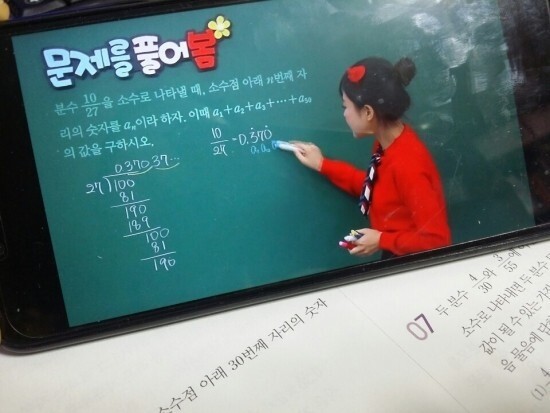 문제를 풀어봄
분수 10/27 을 소수로 나타낼 때, 소수점 아래 n번째 자
리의 숫자를 aₙ이라 하자. 이때 a₁+a₂+a₃+⋯+a₅₀
의 값을 구하시오.
10/27 = 0.3̇70̇
a₁ a₂
0.37037⋯
27)100
81
190
189
100
81
190
소수점 아래 30번째 자리의 숫자
07 두 분수 4/30 와 3/55 에
소수로 나타내면 두 분수
값이 될 수 있는 가
음 물음에 답
(1) 4